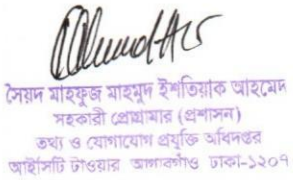 সৈয়দ মাহফুজ মাহমুদ ইশতিয়াক আহমেদ
সহকারী প্রোগ্রামার (প্রশাসন)
তথ্য ও যোগাযোগ প্রযুক্তি অধিদপ্তর
আইসিটি টাওয়ার আগারগাঁও ঢাকা-১২০৭